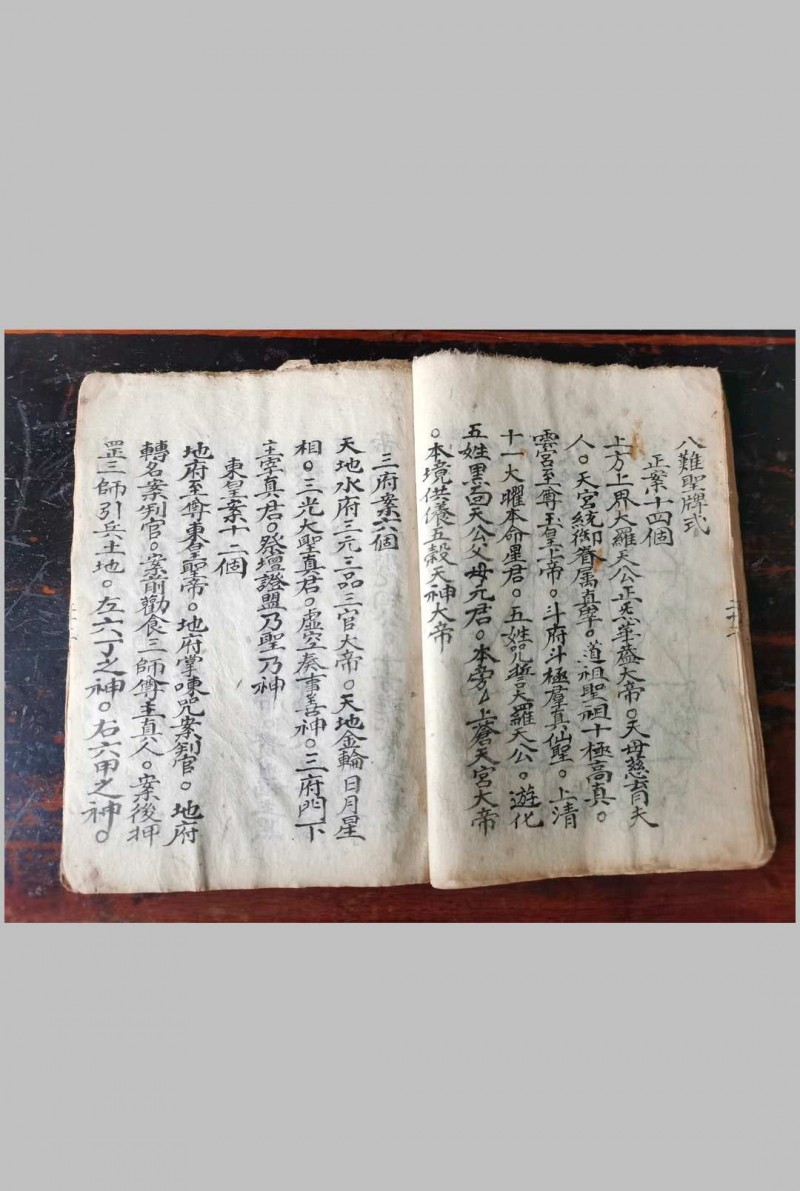 八難聖牌式
正案十四個
上方上界大羅天公正炁華蓋大帝。天母慈育夫
人。天宮統御眷属真宰。道祖聖祖十極高真。
雲宮至尊玉皇上帝。斗府斗極羣真仙聖。上清
十一大曜本命星君。五姓咒誓天羅天公。遊化
五姓黑面天公父母元君。本旁上蒼天宮大帝
。本境供養五穀天神大帝
三府案六個
天地水府三元三品三官大帝。天地金輪日月星
相。三光大聖真君。虛空奏事善神。三府門下
主宰真君。祭壇證盟乃聖乃神
東皇案十二個
地府至尊東皇聖帝。地府掌喫咒案判官。地府
轉名案判官。案前勸食三師尊主真人。案後押
罡三師引兵土地。左六丁之神。右六甲之神。